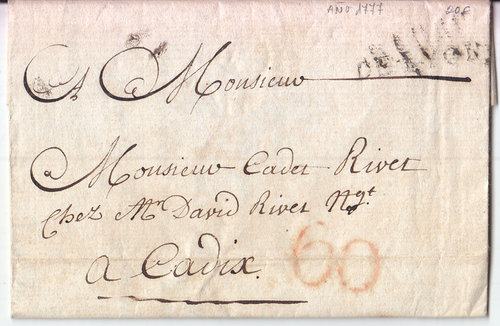 AÑO 1777
A Monsieur
A Monsieur Cadet Rivet
Chez Mr. David Rivet Ngt.
a Cadix.
60